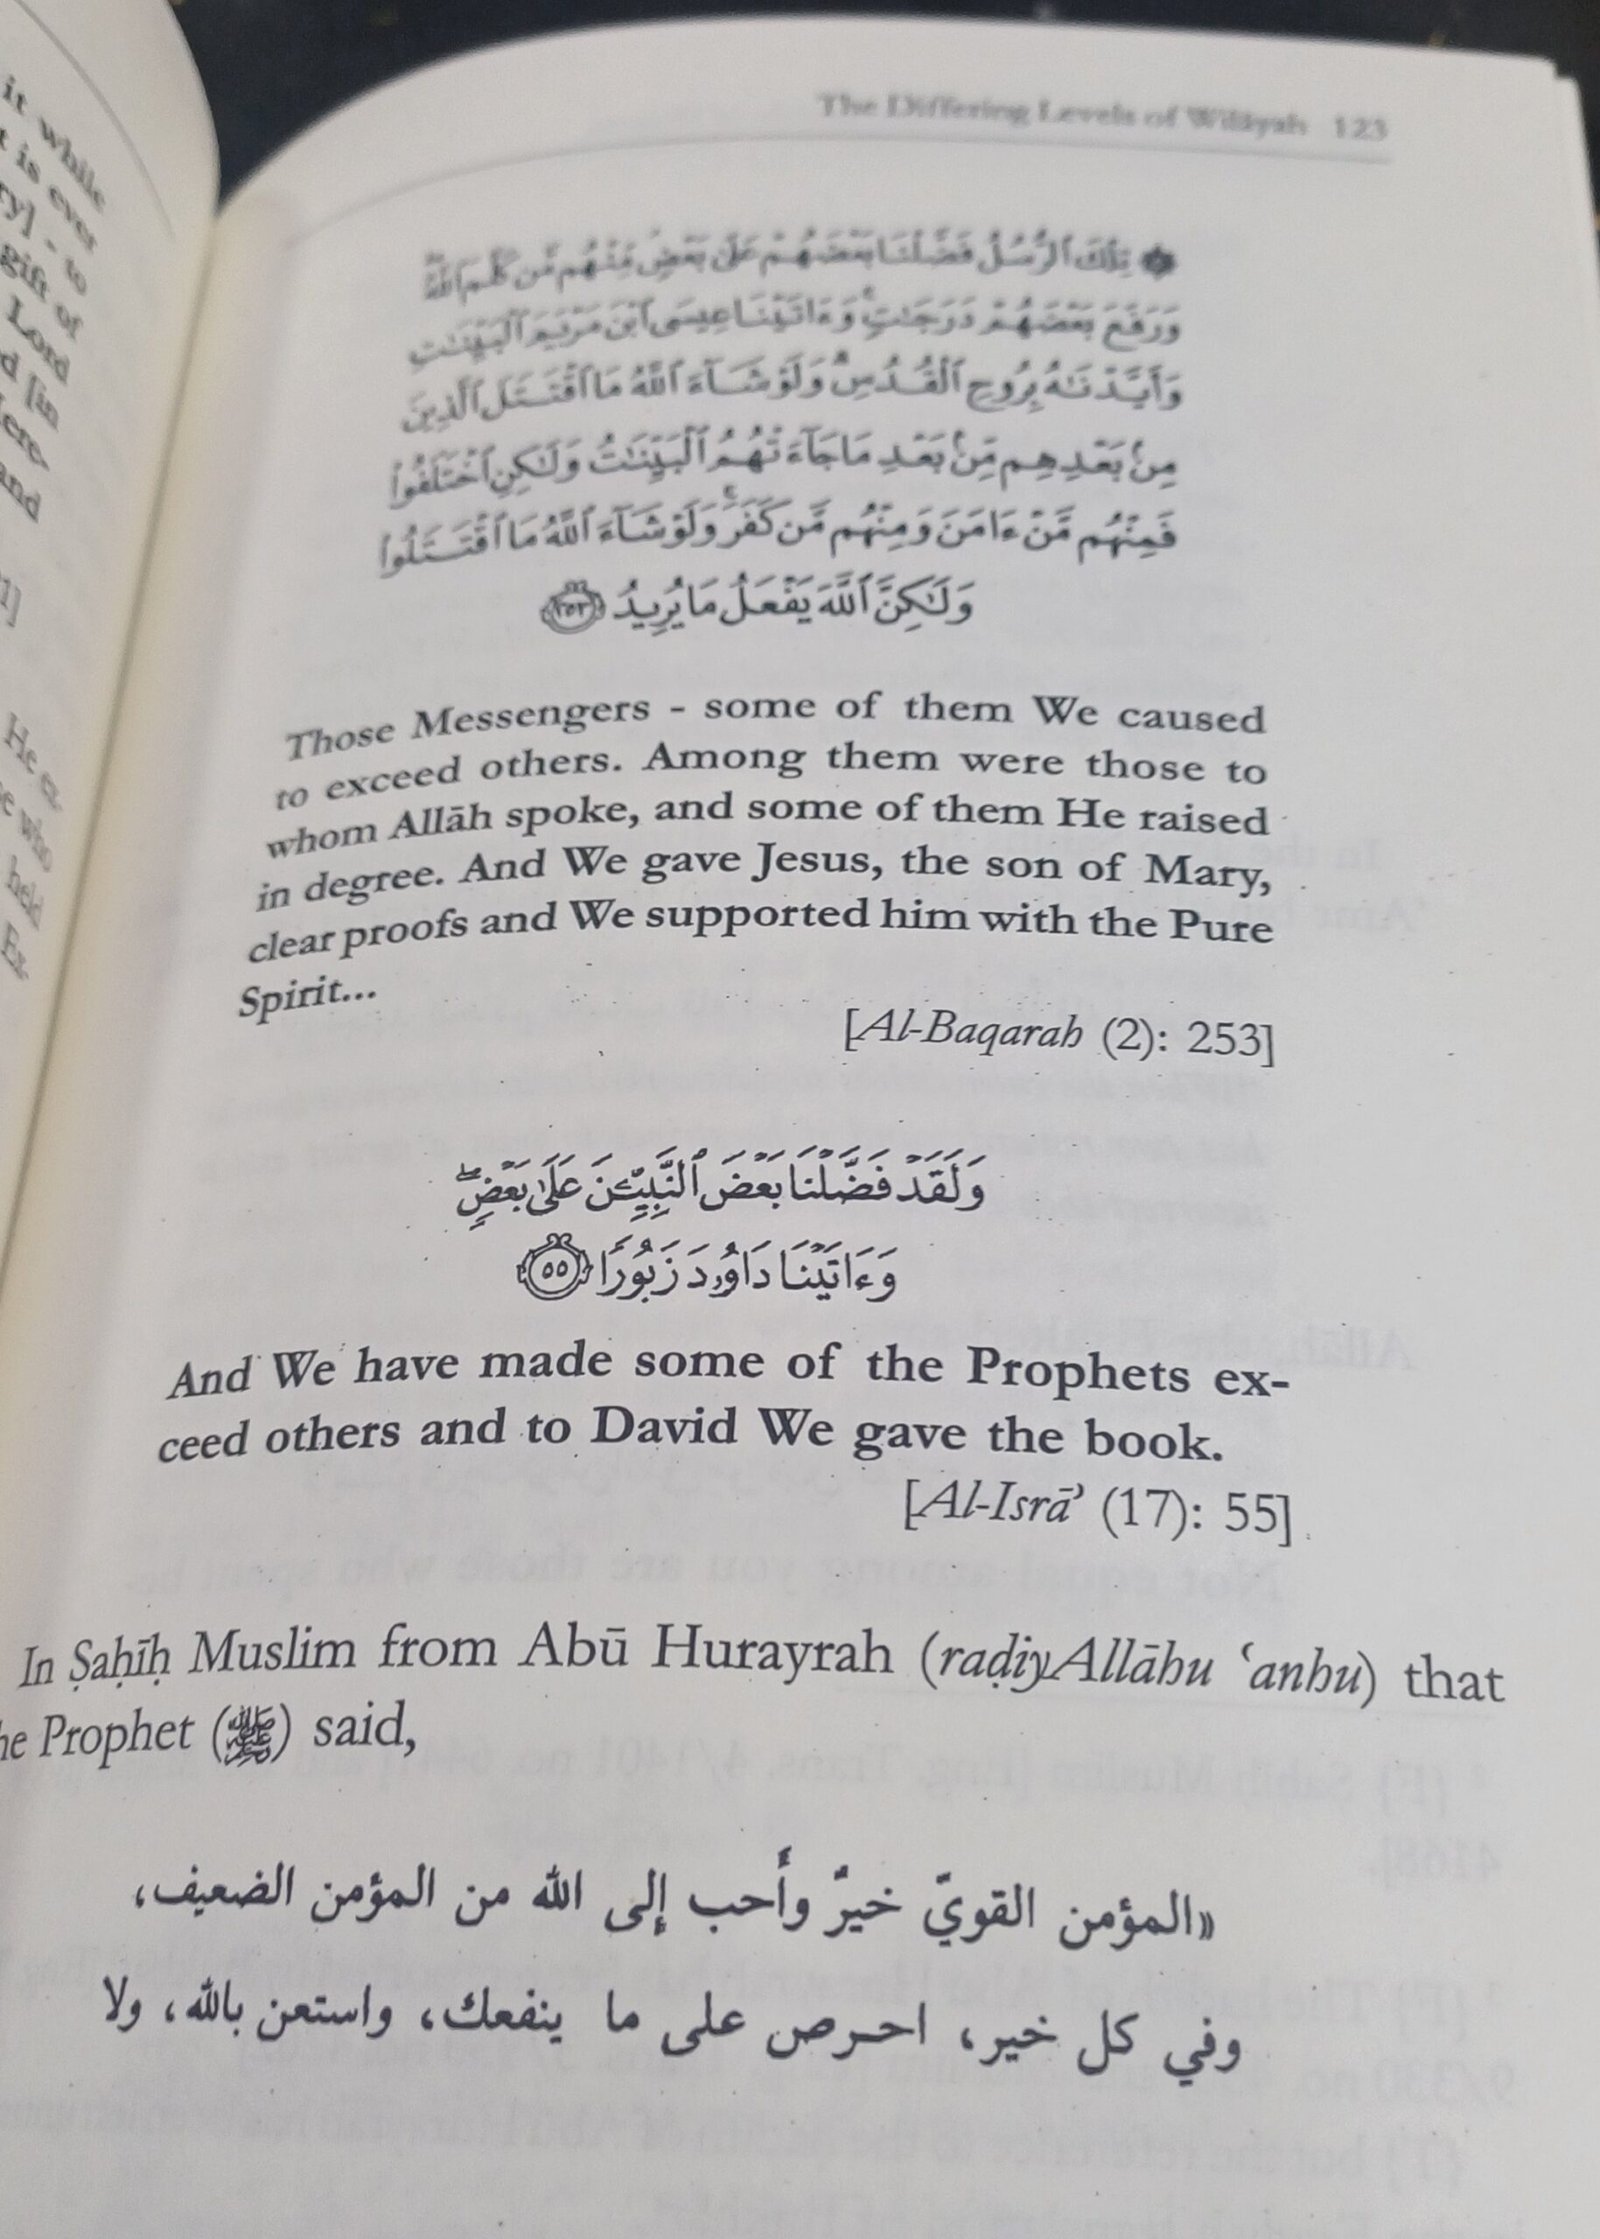 it while
t is ever
ry] - to
gift of
Lord
d [in
and
He ex-
e who
held
The Differing Levels of Wilāyah 123
۞ تِلْكَ ٱلرُّسُلُ فَضَّلْنَا بَعْضَهُمْ عَلَىٰ بَعْضٍ مِّنْهُم مَّن كَلَّمَ ٱللَّهُ
وَرَفَعَ بَعْضَهُمْ دَرَجَٰتٍ وَءَاتَيْنَا عِيسَى ٱبْنَ مَرْيَمَ ٱلْبَيِّنَٰتِ
وَأَيَّدْنَٰهُ بِرُوحِ ٱلْقُدُسِ وَلَوْ شَآءَ ٱللَّهُ مَا ٱقْتَتَلَ ٱلَّذِينَ
مِنۢ بَعْدِهِم مِّنۢ بَعْدِ مَا جَآءَتْهُمُ ٱلْبَيِّنَٰتُ وَلَٰكِنِ ٱخْتَلَفُوا۟
فَمِنْهُم مَّنْ ءَامَنَ وَمِنْهُم مَّن كَفَرَ ۚ وَلَوْ شَآءَ ٱللَّهُ مَا ٱقْتَتَلُوا۟
وَلَٰكِنَّ ٱللَّهَ يَفْعَلُ مَا يُرِيدُ ٢٥٣
Those Messengers - some of them We caused
to exceed others. Among them were those to
whom Allāh spoke, and some of them He raised
in degree. And We gave Jesus, the son of Mary,
clear proofs and We supported him with the Pure
Spirit...
[Al-Baqarah (2): 253]
وَلَقَدْ فَضَّلْنَا بَعْضَ ٱلنَّبِيِّۦنَ عَلَىٰ بَعْضٍ ۖ
وَءَاتَيْنَا دَاوُۥدَ زَبُورًا ٥٥
And We have made some of the Prophets ex-
ceed others and to David We gave the book.
[Al-Isrā’ (17): 55]
In Ṣaḥīḥ Muslim from Abū Hurayrah (raḍiyAllāhu ‘anhu) that
he Prophet (ﷺ) said,
«المؤمن القويّ خيرٌ وأَحب إلى الله من المؤمن الضعيف،
وفي كل خير، احرص على ما ينفعك، واستعن بالله، ولا